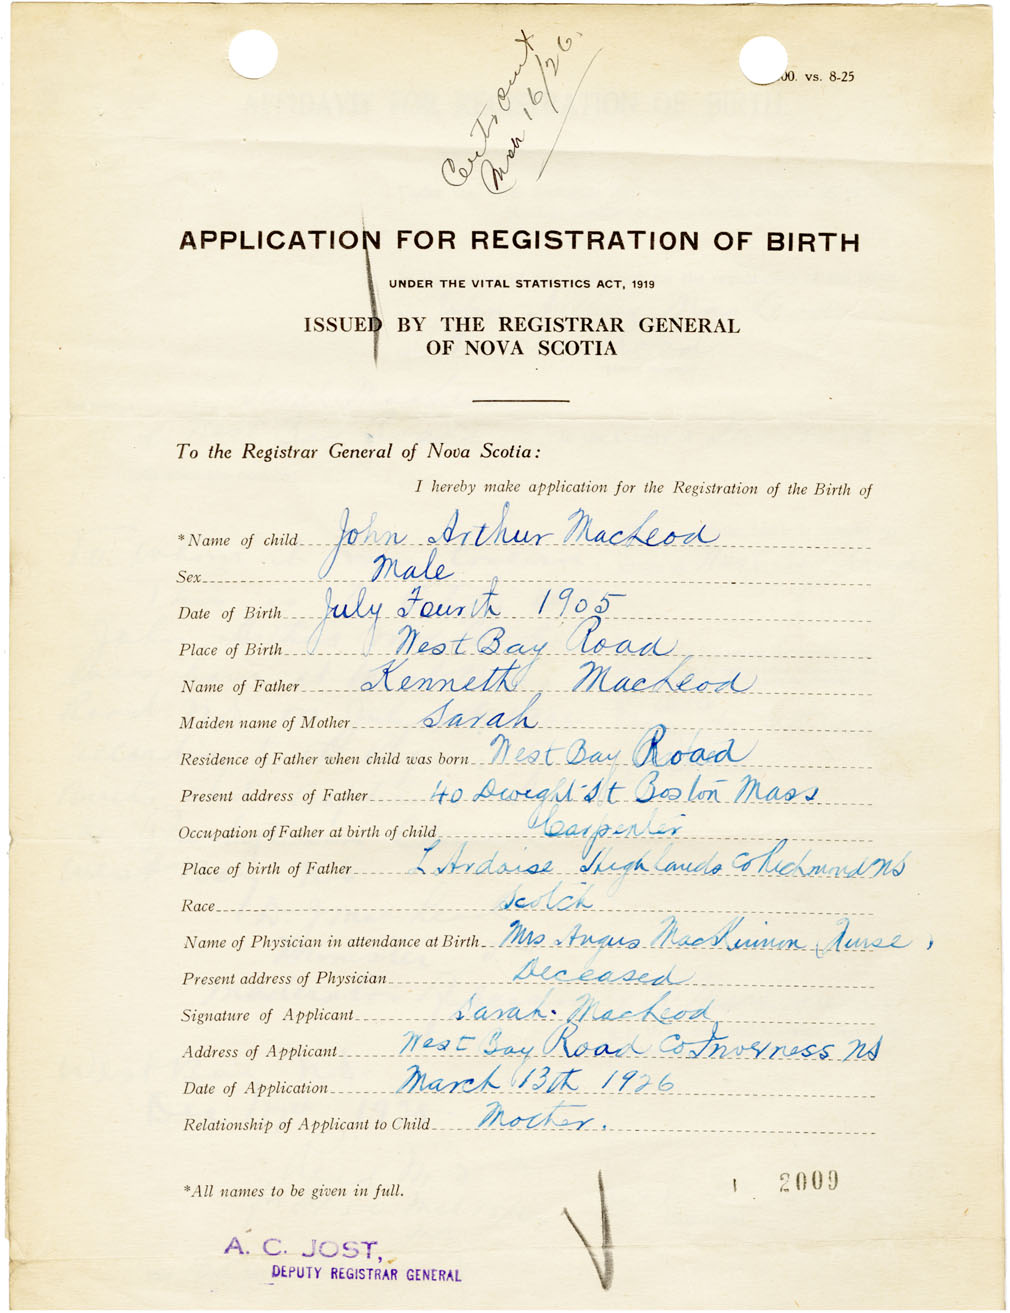 Cert. sent
Mar 16/26.
00. vs. 8-25
APPLICATION FOR REGISTRATION OF BIRTH
UNDER THE VITAL STATISTICS ACT, 1919
ISSUED BY THE REGISTRAR GENERAL
OF NOVA SCOTIA
To the Registrar General of Nova Scotia:
I hereby make application for the Registration of the Birth of
*Name of child John Arthur MacLeod
Sex Male
Date of Birth July Fourth 1905
Place of Birth West Bay Road
Name of Father Kenneth MacLeod
Maiden name of Mother Sarah
Residence of Father when child was born West Bay Road
Present address of Father 40 Dwight St Boston Mass
Occupation of Father at birth of child Carpenter
Place of birth of Father L Ardoise Highlands Co Richmond NS
Race Scotch
Name of Physician in attendance at Birth Mrs Angus MacKinnon Nurse,
Present address of Physician Deceased
Signature of Applicant Sarah. MacLeod
Address of Applicant West Bay Road Co Inverness NS
Date of Application March 13th 1926
Relationship of Applicant to Child Mother.
*All names to be given in full.
2009
A. C. JOST,
DEPUTY REGISTRAR GENERAL